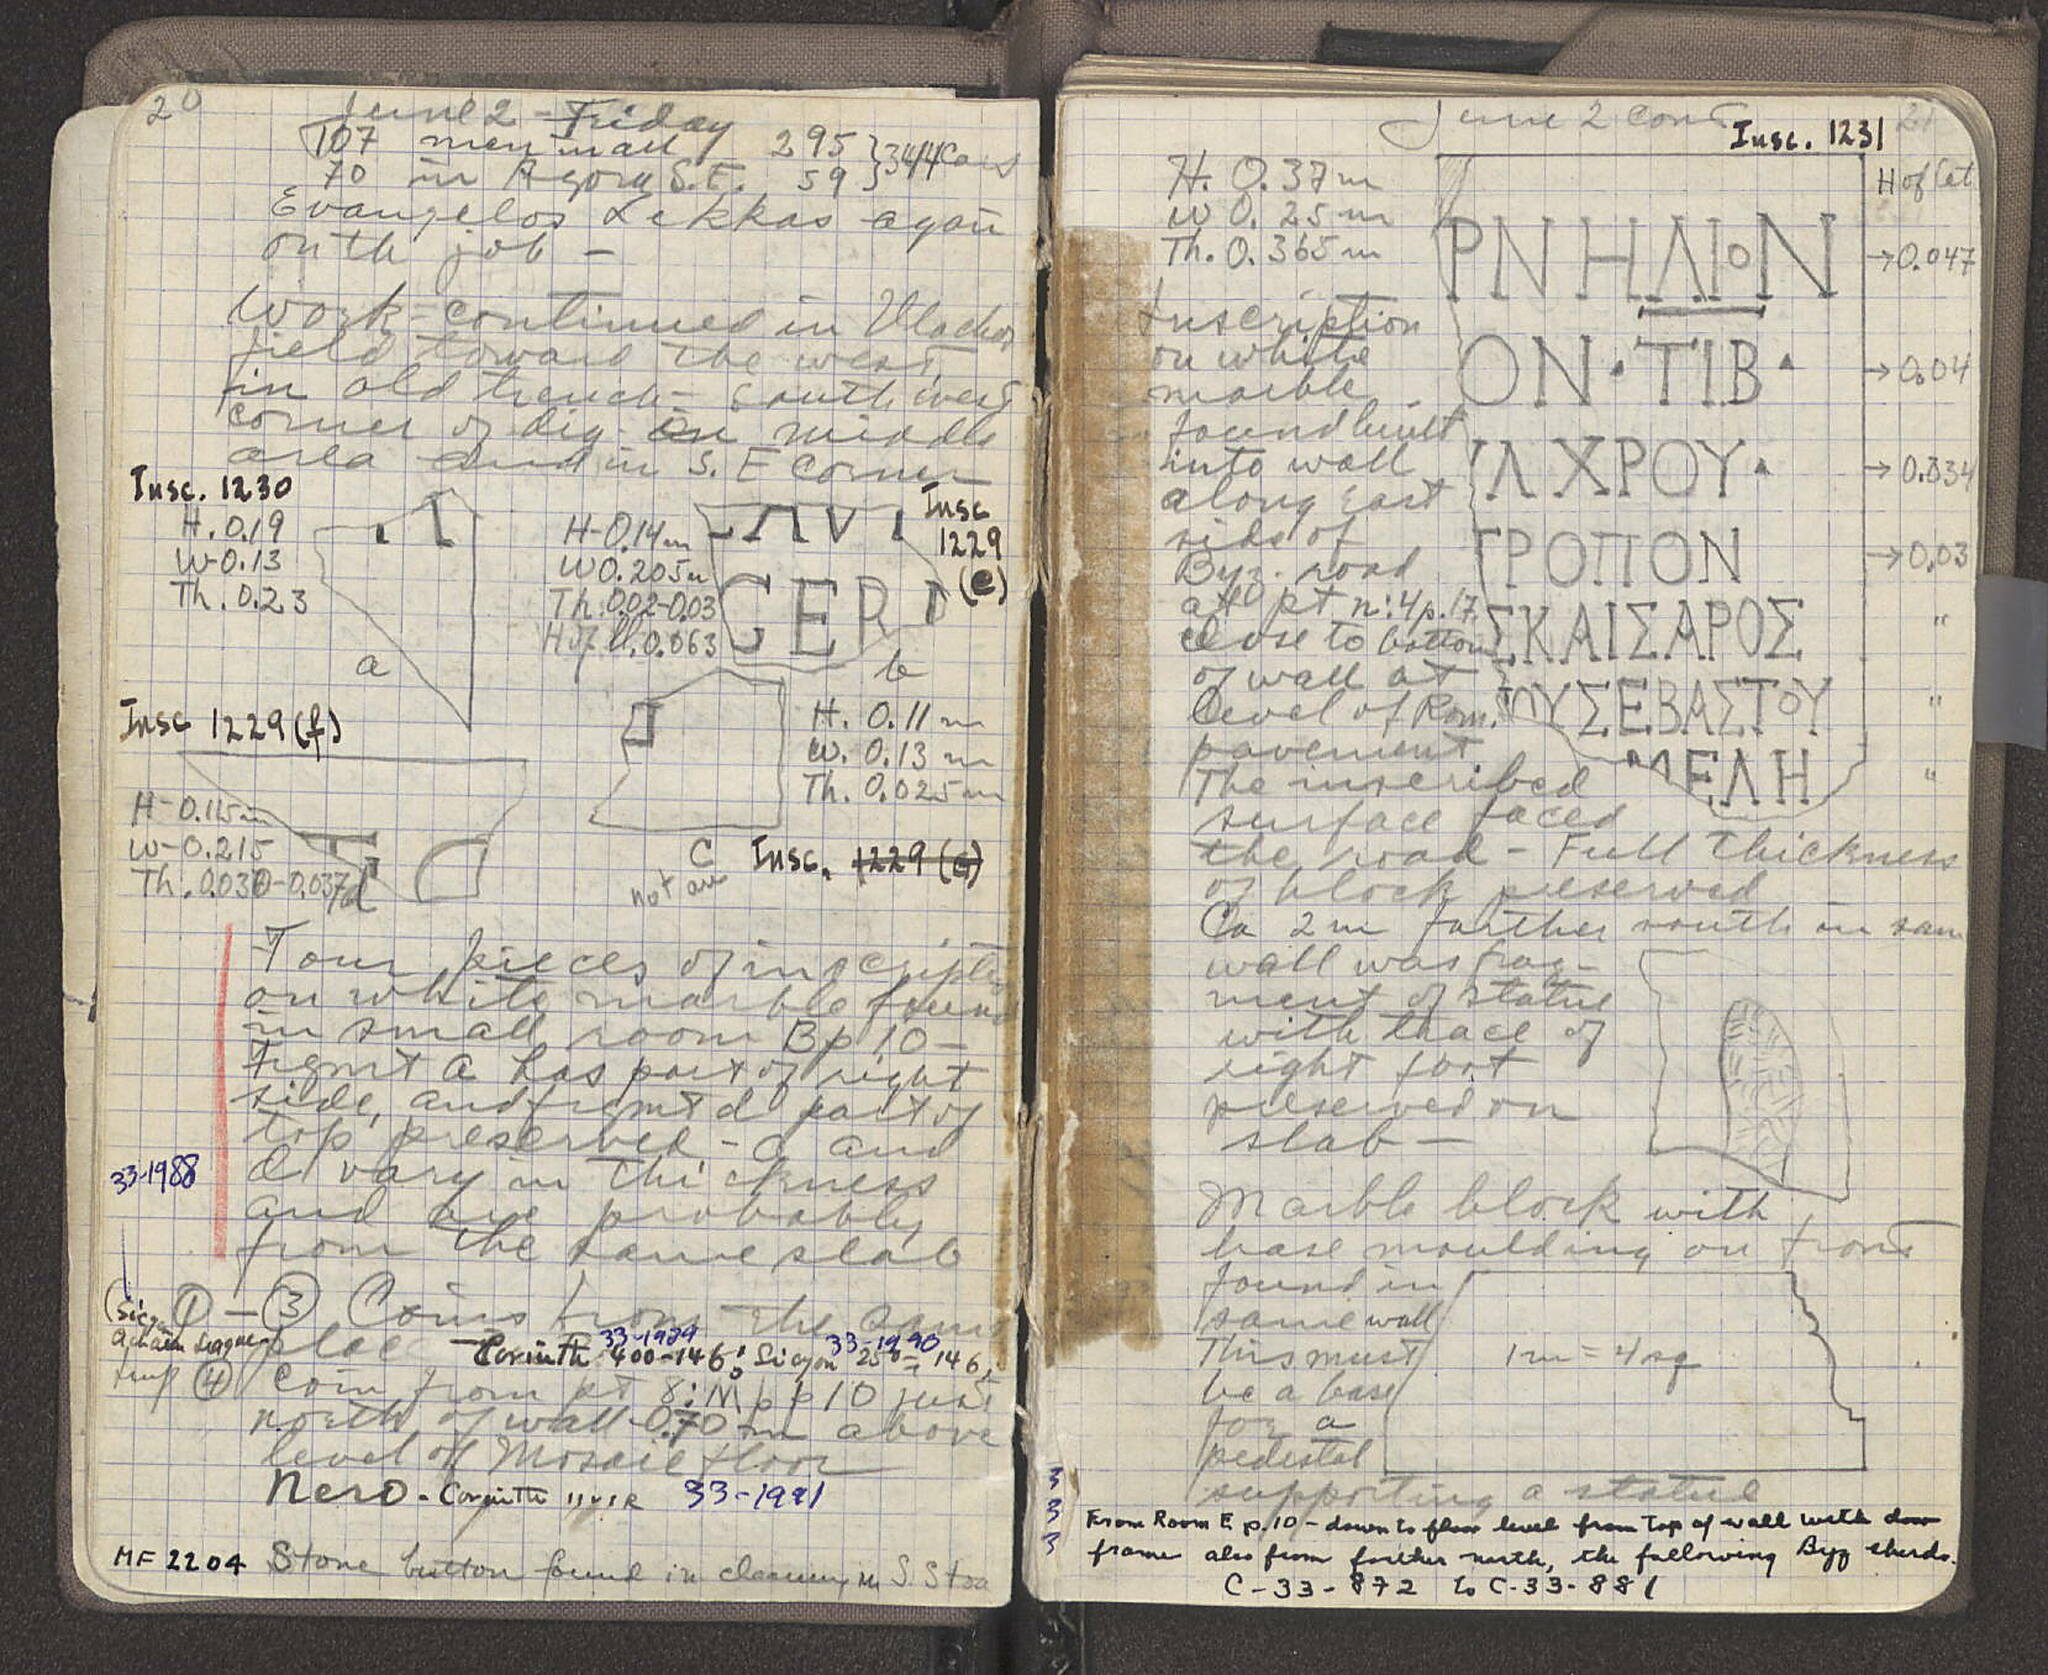 20
June 2 - Friday
107 men in all 295 } 344 Cars
70 in Agora S.E. 59
Evangelos Lekkas again
on th job -
Work continued in Vlachos
field toward the west,
in old trench - South west
corner of dig in middle
area and in S. E corner
Insc. 1230
H. 0.19
W-0.13
Th. 0.23
a
H-0.14m
W 0.205m
Th. 0.02-0.03
H of ll. 0.063
CERP
b
Insc
1229
(e)
Insc 1229 (f)
H-0.115m
W-0.215
Th. 0.030-0.037
d
H. 0.11 m
W. 0.13 m
Th. 0.025m
C Insc. 1229
not
Four pieces of inscription
on white marble found
in small room B p 10 -
Frgmt a has part of right
side, and frgmt d part of
top preserved - a and
d vary in thickness
and are probably
from the same slab
33-1988
(Sicyon
Achaean League
① - ③ Coins from the same
place - 33-1989 33-1990
Corinth 400-146; Sicyon 250-146,
④ Coin from pt 8:M p 10 just
north of wall 0.70 m above
level of Mosaic floor
Nero - Corinth IIVIR 33-1991
MF 2204 Stone button found in cleaning in S. Stoa
June 2 cont 21
Insc. 1231
H. 0.37m
W 0.25m
Th. 0.365m
H of let
ΡΝΗΛΙΟΝ → 0.047
ΟΝ·ΤΙΒ· → 0.04
ΛΧΡΟΥ· → 0.034
ΤΡΟΠΟΝ → 0.03
ΣΚΑΙΣΑΡΟΣ "
ΟΥΣΕΒΑΣΤΟΥ "
ΜΕΛΗ "
Inscription
on white
marble
found built
into wall
along east
side of
Byz. road
at pt n:4 p.17
close to bottom
of wall at
level of Rom.
pavement
The inscribed
surface faced
the road - Full thickness
of block preserved
Ca 2m farther south in same
wall was frag-
ment of statue
with trace of
right foot
preserved on
slab -
Marble block with
base moulding on front
found in
same wall
This must
be a base
for a
pedestal
supporting a statue
1m = 4 sq
3
3
3
From Room E p.10 - down to floor level from top of wall with door
frame also from farther north, the following Byz sherds.
C-33-872 to C-33-881